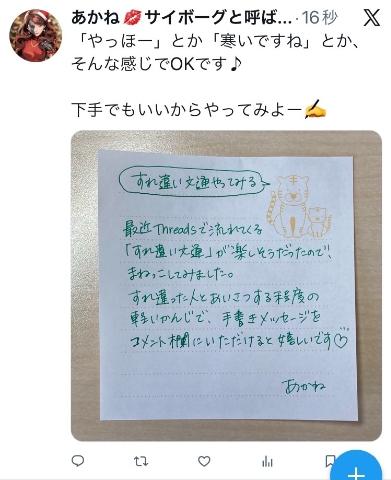 あかね💋サイボーグと呼ば...・16秒
「やっほー」とか「寒いですね」とか、
そんな感じでOKです♪
下手でもいいからやってみよー✍️
すれ違い文通やってみる
最近Threadsで流れてくる
「すれ違い文通」が楽しそうだったので、
まねっこしてみました。
すれ違った人とあいさつする程度の
軽いかんじで、手書きメッセージを
コメント欄にいただけると嬉しいです♡
あかね